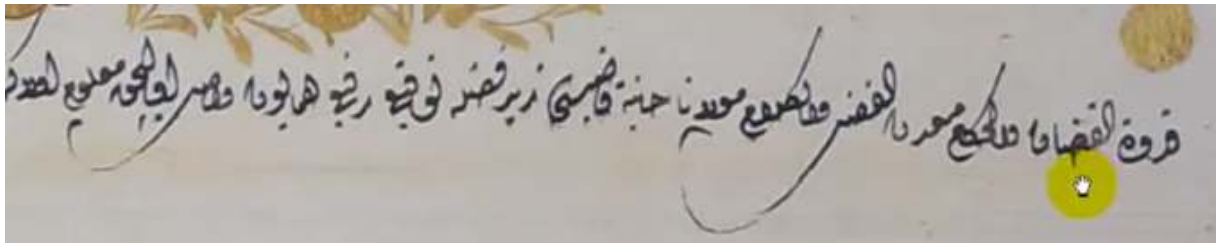 قدوة القضاة والحكام معدن الفضل والكلام مولانا خانية قاضيسى زيد فضله توقيع رفيع همايون واصل اولیجق معلوم اولا كه